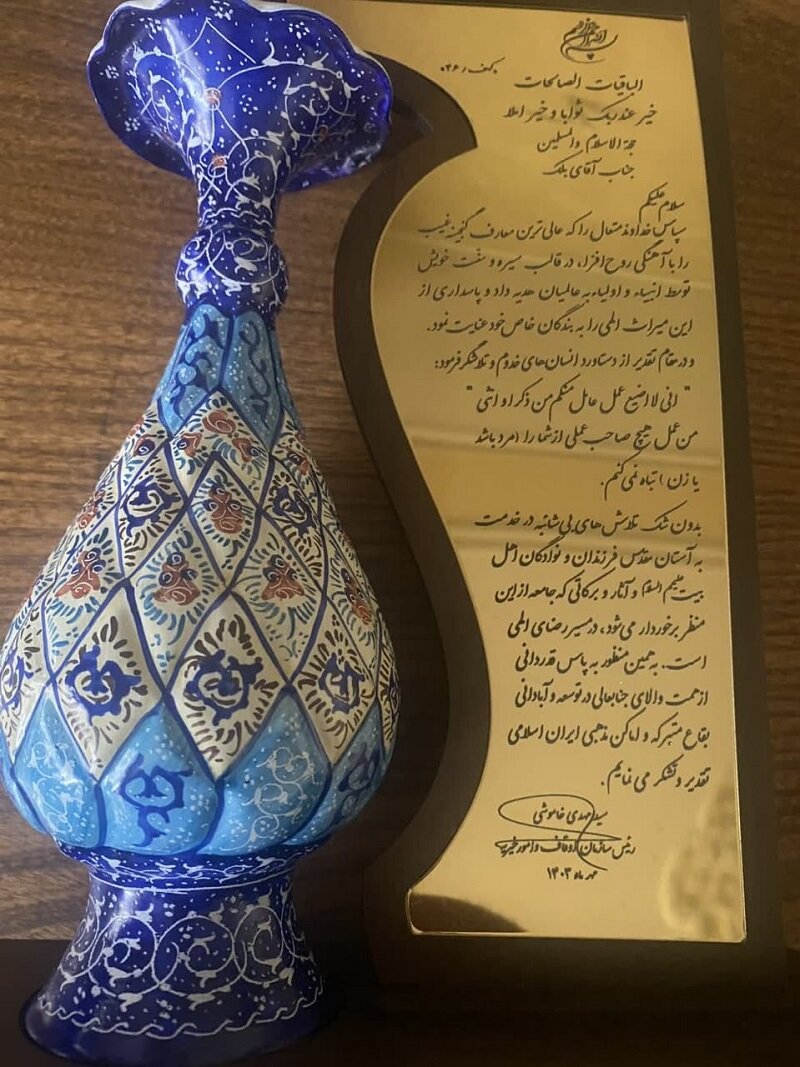 بسم الله الرحمن الرحیم
کهف ، ۰۴۶
الباقیات الصالحات
خیر عند ربک ثوابا و خیر املا
حجة الاسلام والمسلمین
جناب آقای بلک
سلام علیکم
سپاس خداوند متعال را که عالی ترین معارف گنجینه غیب
را با آهنگی روح افزا، در قالب سیره و سنت خویش
توسط انبیاء و اولیاء به عالمیان هدیه داد و پاسداری از
این میراث الهی را به بندگان خاص خود عنایت نمود.
و در مقام تقدیر از دستاورد انسان های خدوم و تلاشگر فرمود:
" انی لا اضیع عمل عامل منکم من ذکر او انثی "
من عمل هیچ صاحب عملی از شما را (مرد باشد
یا زن) تباه نمی کنم.
بدون شک تلاش های بی شائبه در خدمت
به آستان مقدس فرزندان و نوادگان اهل
بیت علیهم السلام و آثار و برکاتی که جامعه از این
منظر برخوردار می شود، در مسیر رضای الهی
است. به همین منظور به پاس قدردانی
از همت والای جنابعالی در توسعه و آبادانی
بقاع متبرکه و اماکن مذهبی ایران اسلامی
تقدیر و تشکر می نمایم.
سید مهدی خاموشی
رئیس سازمان اوقاف و امور خیریه
مهر ماه ۱۴۰۳